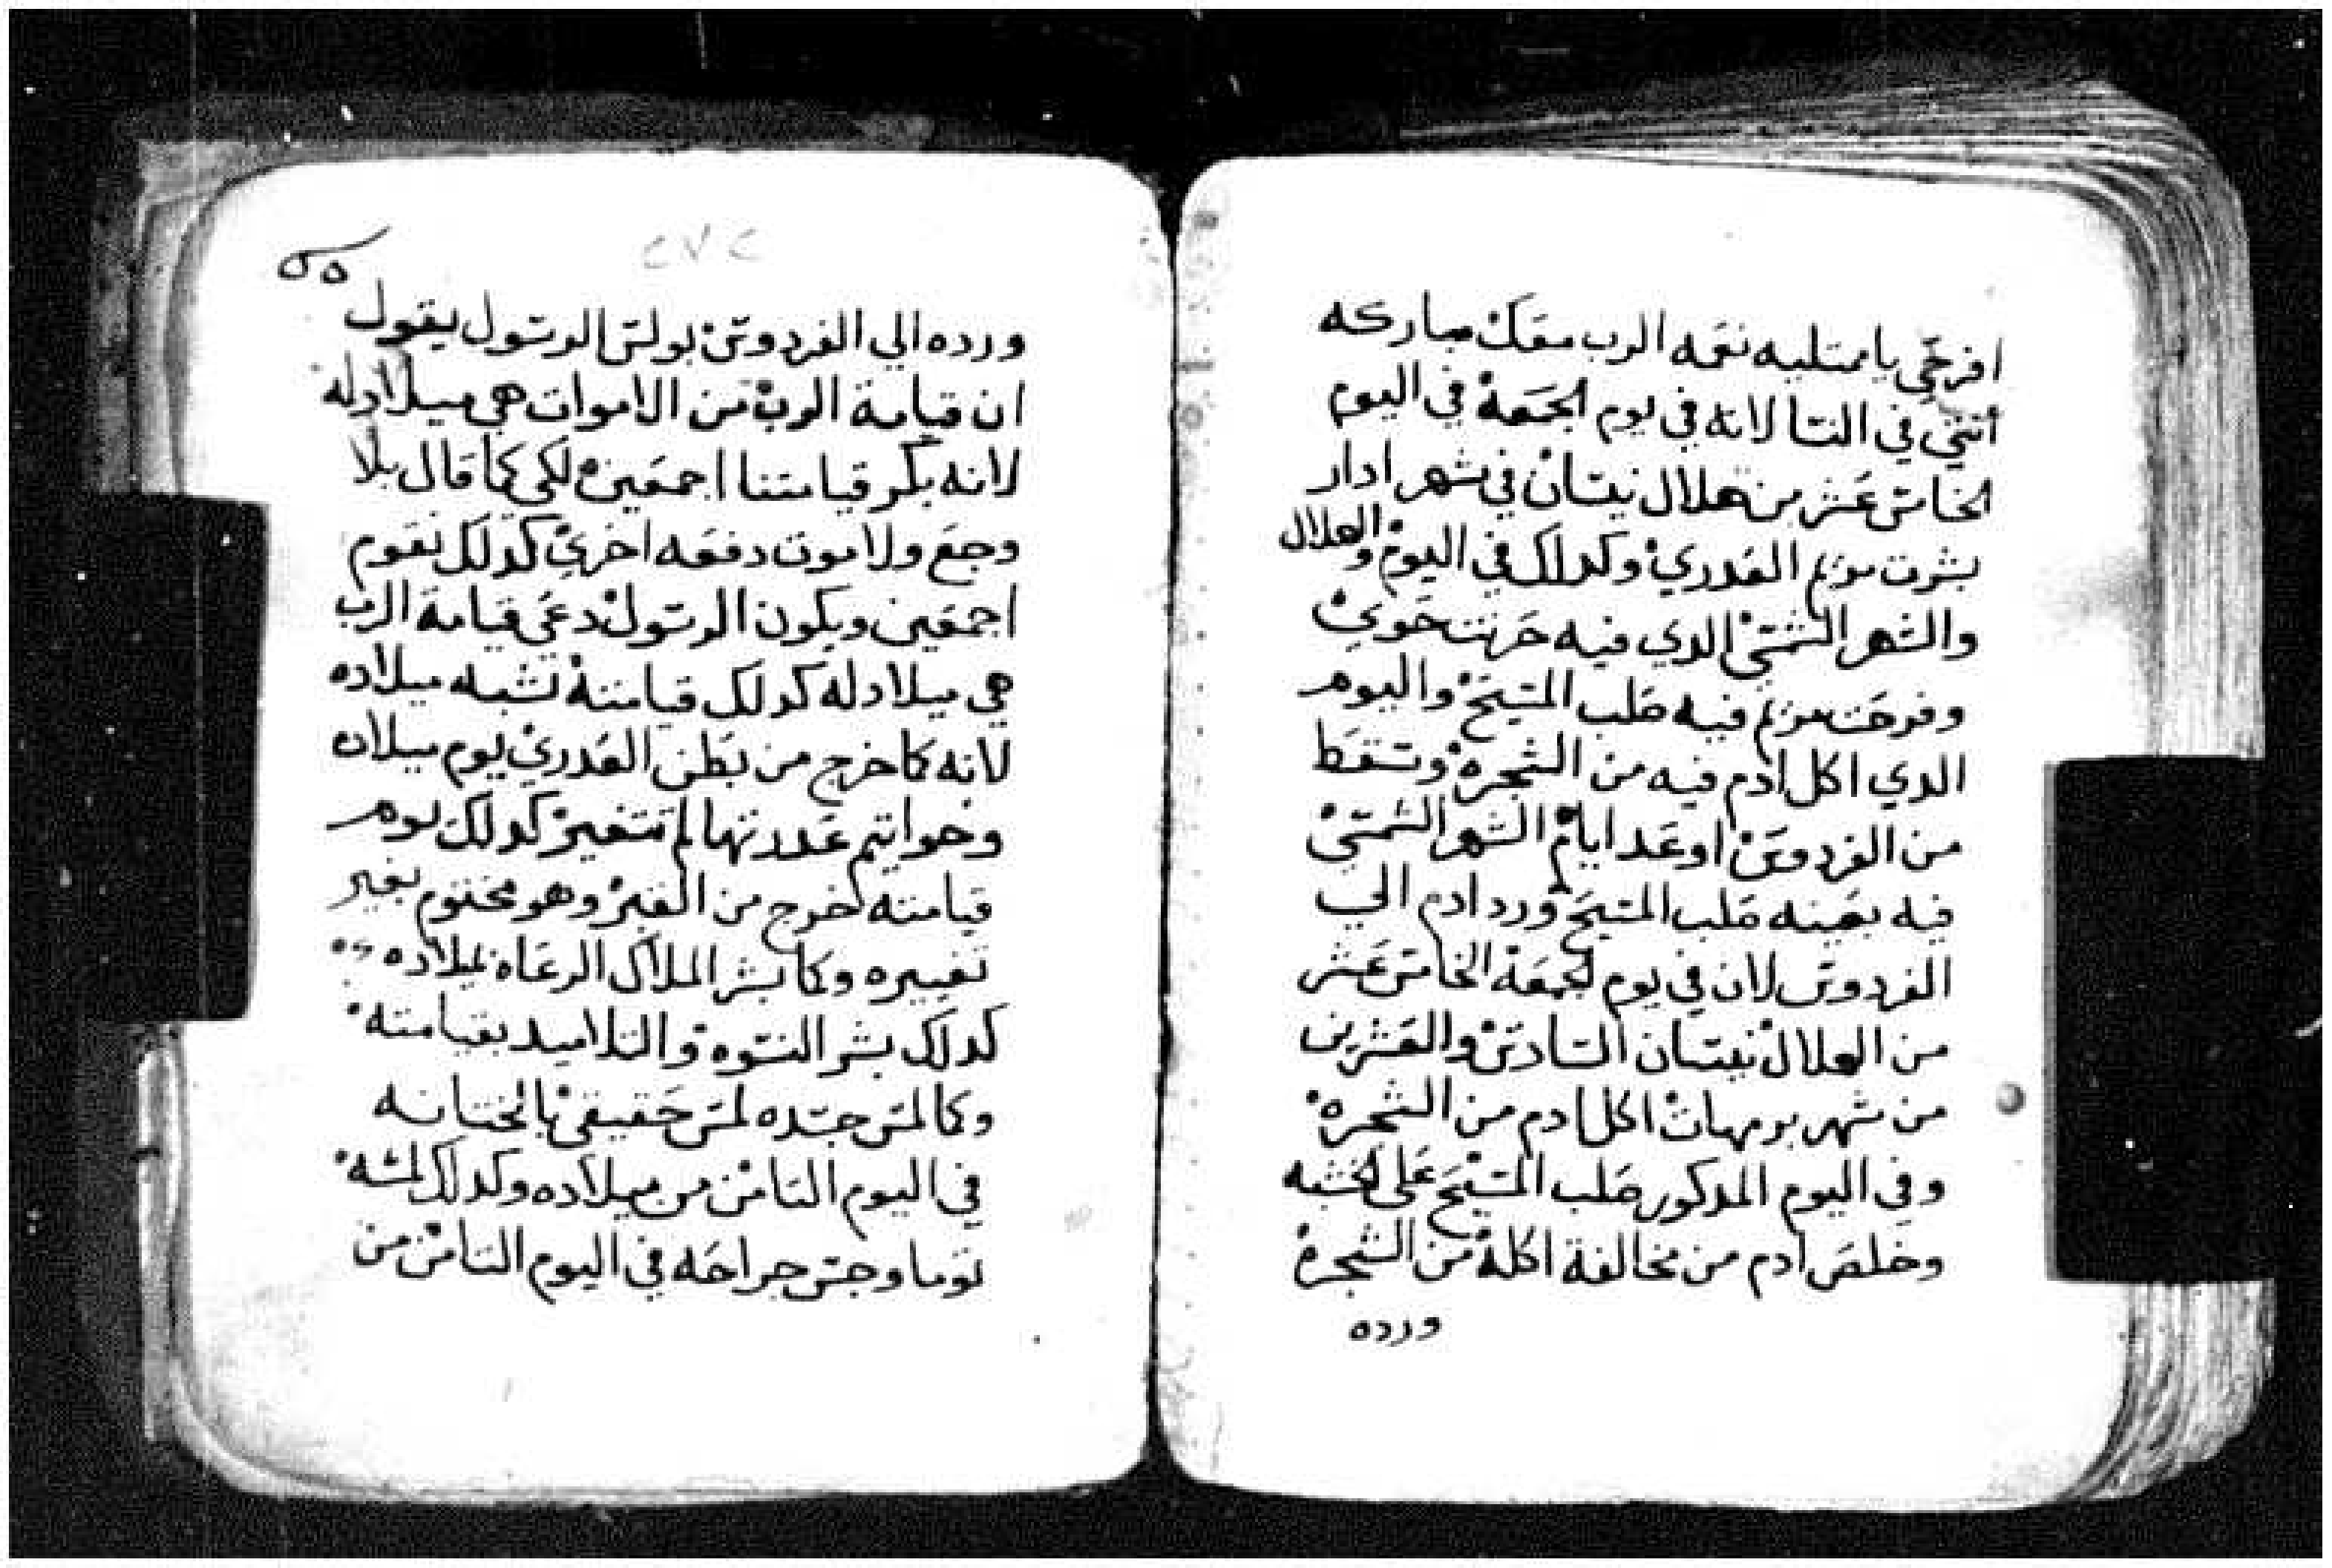 افرحي يا ممتليه نعمه الرب معك مباركه
أنتي في النسا لانه في يوم الجمعة في اليوم
الخامس عشر من هلال نيسان في شهر ادار
بشرت مريم العدري وكدلك في اليوم والهلال
والشهر الشمسي الدي فيه حزنت حوي
وفرحت مريم فيه صلب المسيح واليوم
الدي اكل ادم فيه من الشجره وسقط
من الفردوس اوعد ايام الشهر الشمسي
فيه بعينه صلب المسيح ورد ادم الي
الفردوس لان في يوم لجمعة الخامس عشر
من الهلال نيسان السادس والعشرين
من شهر برمهات اكل ادم من الشجره
وفي اليوم المدكور صلب المسيح على لخشبه
وخلص ادم من مخالفة اكلة من الشجرة
ورده
٥٥
٢٧٢
ورده الي الفردوس بولس الرسول يقول
ان قيامة الرب من الاموات هي ميلاد له
لانه بكر قيامتنا اجمعين لكي كما قال بلا
وجع ولا موت دفعه اخري كدلك نقوم
اجمعين ويكون الرسول دعي قيامة الرب
هي ميلاد له كدلك قيامتة تشبه ميلاده
لانه كما خرج من بطن العدري يوم ميلاده
وخواتيم عدرتها لم تتغير كدلك يوم
قيامته خرج من القبر وهو مختوم بغير
تغييره وكما بشر الملاك الرعاه بميلاده
كدلك بشر النسوه والتلاميد بقيامته
وكما لمس جسده لمس حقيقي بالختانه
في اليوم التامن من ميلاده وكدلك لمسه
توما وجس جراحه في اليوم التامن من